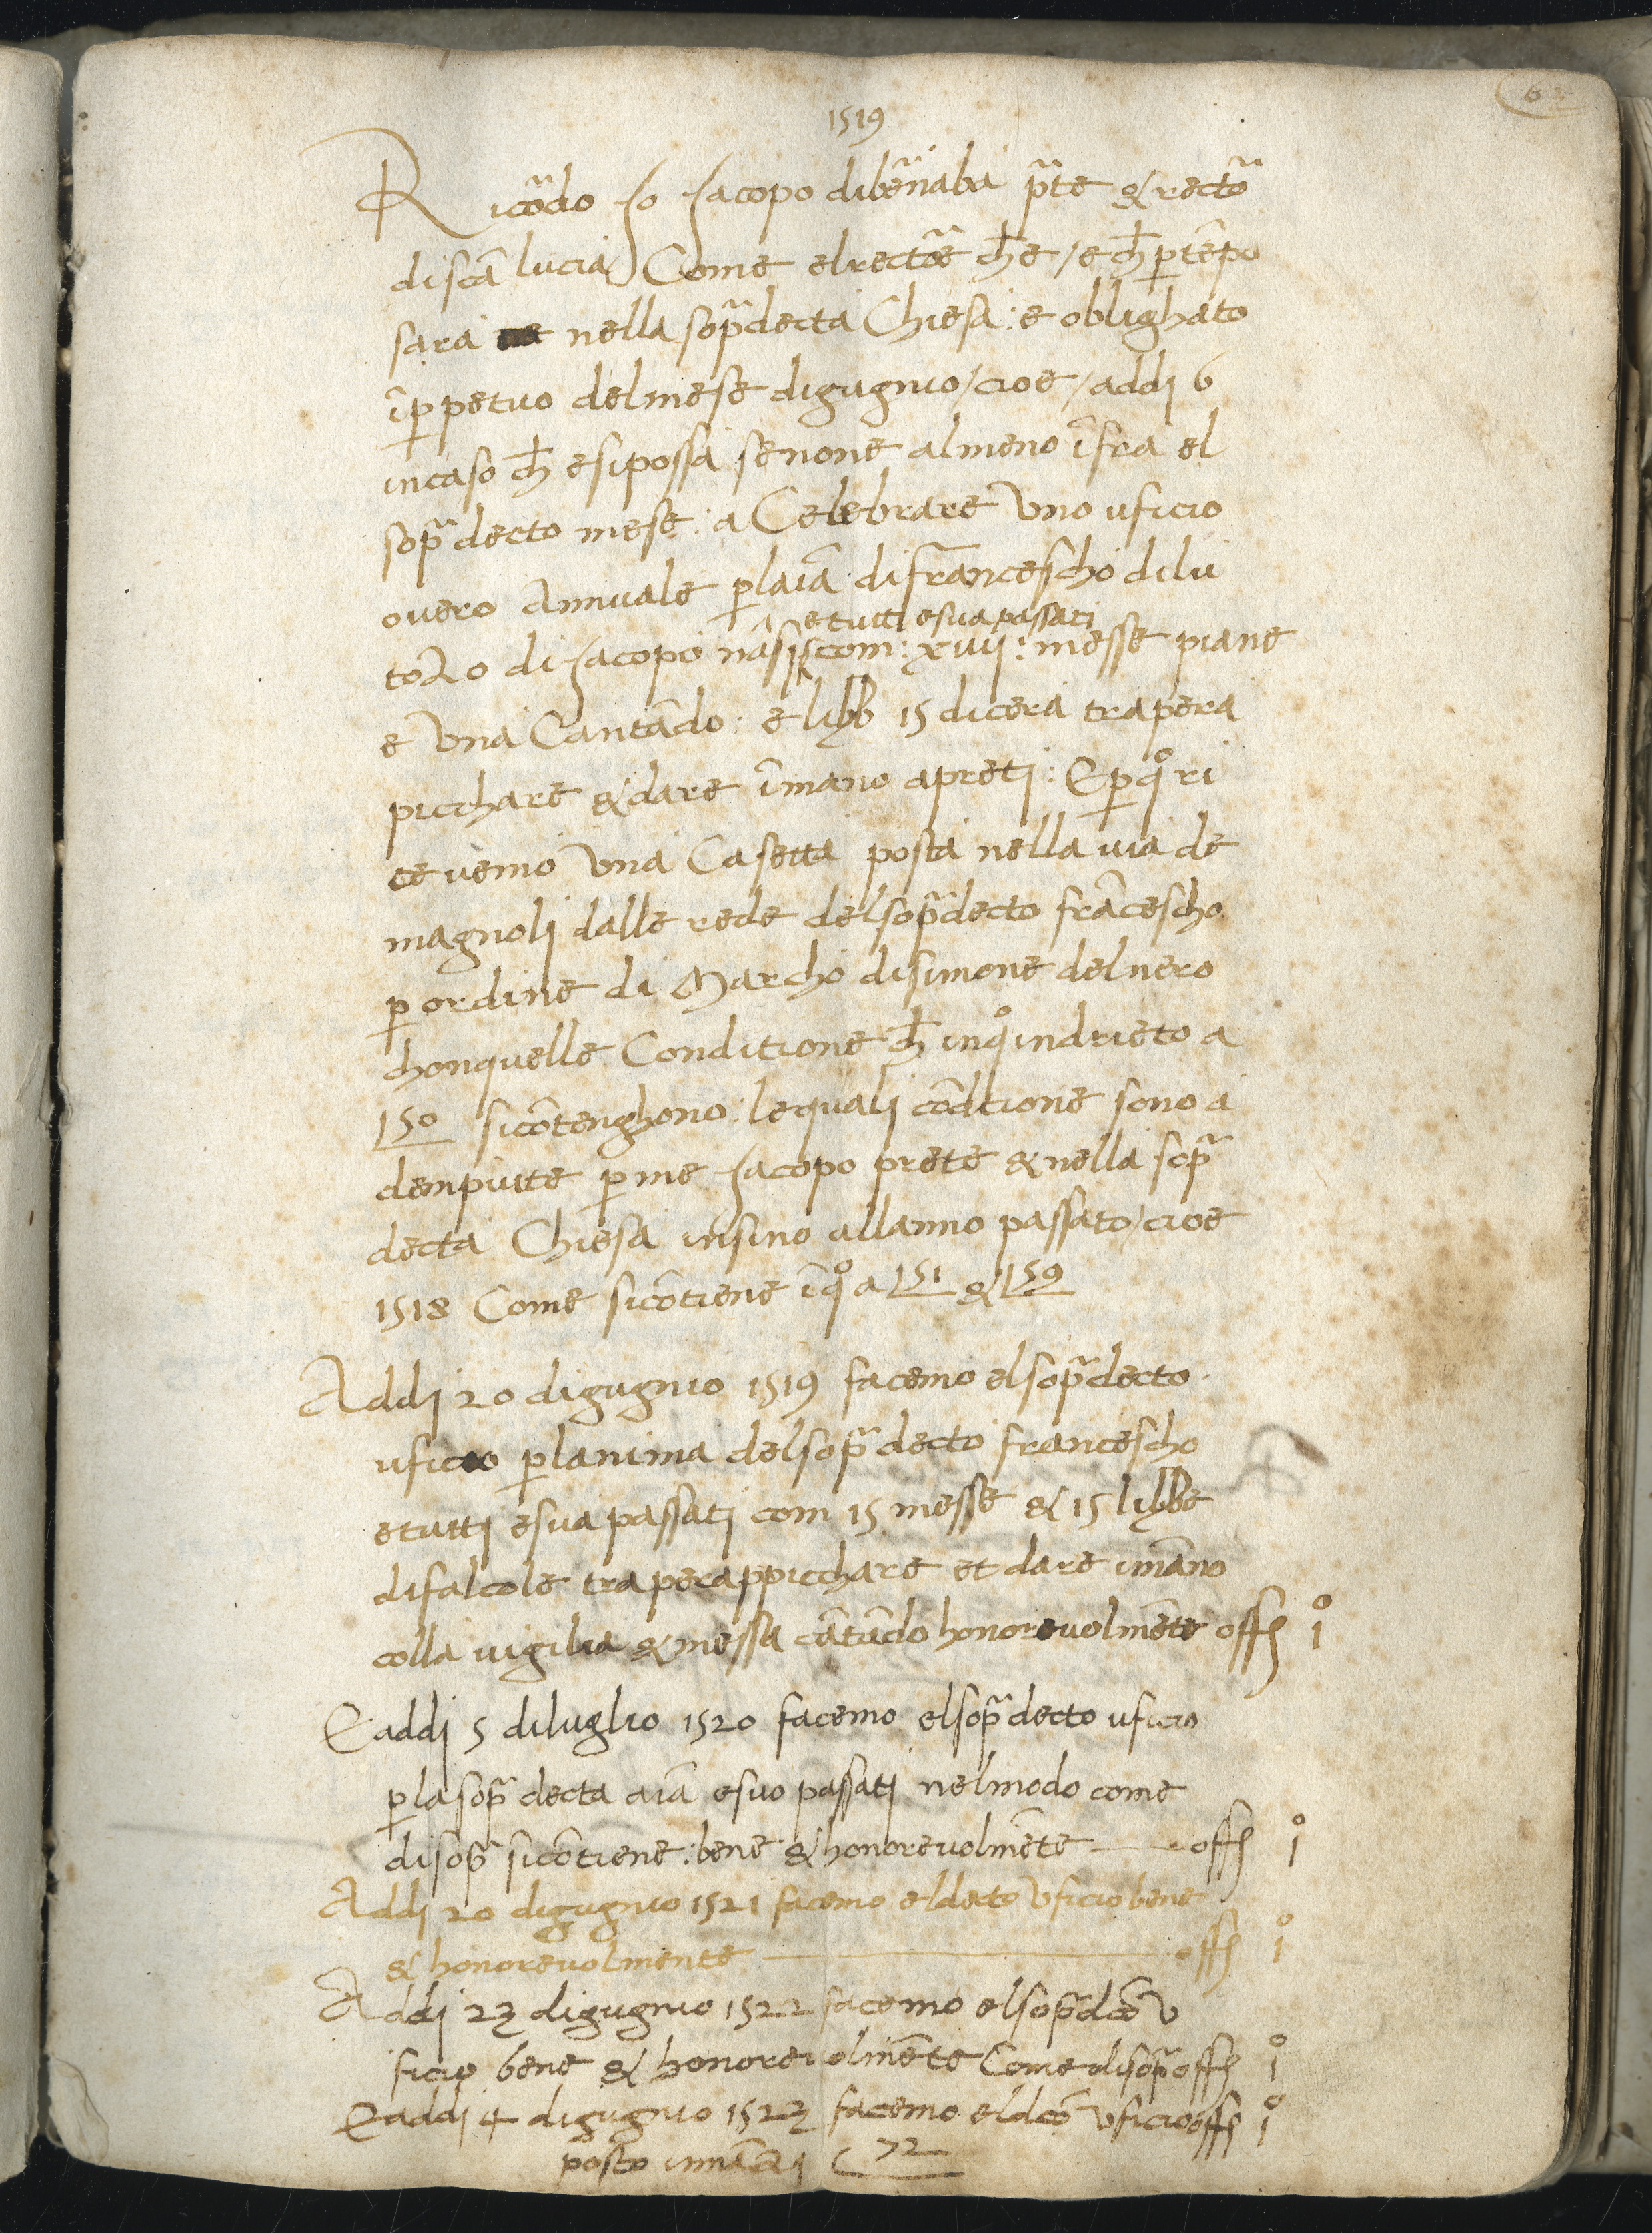 1519
Ricõdo Jo Jacopo di bẽnaba p̃te & recto᷑
di scã lucia Come el rectore ch̃ e / e ch̃ p tẽpo
sara nella sop̃a decta Chiesa : e oblighato
ĩ perpetuo del mese di gugnio / cioe / addi 6
in caso ch̃ e si possa se none almeno ĩfra el
sop̃a decto mese : a Celebrare Uno uficio
overo Annuale p la aĩa di Francescho di lu
e tutti e sua passati
tozo di Jacopo nasi com : xviij : messe piane
e Una Cantãdo : e libb 15 di cera tra per a
picchare & dare ĩ mano a preti : E p q̊ ri
cevemo Una Casetta posta nella via de
magnoli dalle rede del sop̃a decto frãcescho
p ordine di Marcho di simone del nero
chon quelle Conditione ch̃ in q̊ indrieto a
150 si cõtenghono : le quali cõdicione sono a
dempiute p me Jacopo prete & nella sop̃a
decta Chiesa insino all anno passato / cioe
1518 Come si cõtiene ĩ q̊ a 151 & 159
Addi 20 di gugnio 1519 facemo el sop̃a decto
uficio p l anima del sop̃a decto francescho
e tutti e sua passati com 15 messe & 15 libbe
di falcole tra per appicchare et dare i mãno
colla vigilia & messa cãtãdo honorevolmẽte off i̊
E addi 5 di luglio 1520 facemo el sop̃a decto uficio
p la sop̃a decta aĩa e suo passati nel modo come
di sop̃a si cõtiene : bene & honorevolmẽte off i̊
Addi 20 di gugnio 1521 facemo el decto Uficio bene
& honorevolmente off i̊
Addi 23 di gugnio 1522 facemo el sop̃a dc̃o U
ficio bene & honorevolmẽte Come di sop̃a off i̊
E addi 4 di gugnio 1523 facemo el dc̃o Uficio off i̊
posto innãzi 72